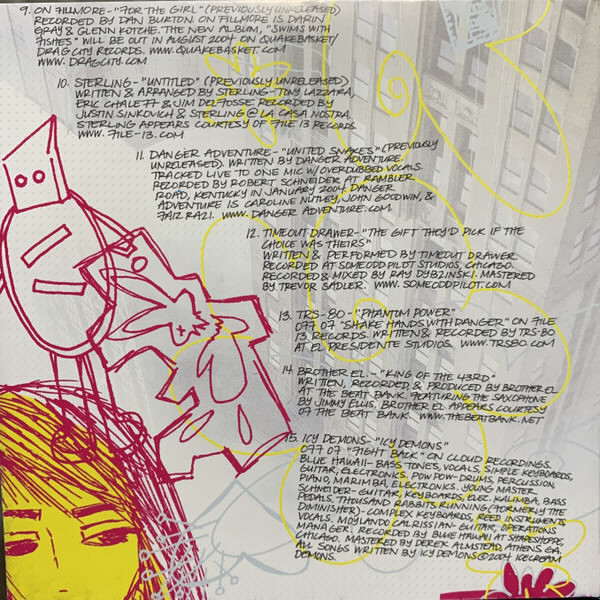 9. ON FILLMORE- "FOR THE GIRL" (PREVIOUSLY UNRELEASED)
RECORDED BY DAN BURTON. ON FILLMORE IS DARIN
GRAY & GLENN KOTCHE. THE NEW ALBUM, "SWIMS WITH
FISHES" WILL BE OUT IN AUGUST 2004 ON QUAKEBASKET/
DRAG CITY RECORDS. WWW.QUAKEBASKET.COM
WWW.DRAGCITY.COM
10. STERLING- "UNTITLED" (PREVIOUSLY UNRELEASED)
WRITTEN & ARRANGED BY STERLING- TONY LAZZARA,
ERIC CHALEFF & JIM DELFOSSE. RECORDED BY
JUSTIN SINKOVICH & STERLING @ LA CASA NOSTRA.
STERLING APPEARS COURTESY OF FILE 13 RECORDS.
WWW.FILE-13.COM
11. DANGER ADVENTURE- "UNITED SNAKES" (PREVIOUSLY
UNRELEASED). WRITTEN BY DANGER ADVENTURE.
TRACKED LIVE TO ONE MIC W/OVERDUBBED VOCALS.
RECORDED BY ROBERT SCHNEIDER AT RAMBLER
ROAD, KENTUCKY IN JANUARY 2004. DANGER
ADVENTURE IS CAROLINE NUTLEY, JOHN GOODWIN, &
FAIZ RAZI. WWW.DANGER ADVENTURE.COM.
12. TIMEOUT DRAWER- "THE GIFT THEY'D PICK IF THE
CHOICE WAS THEIRS"
WRITTEN & PERFORMED BY TIMEOUT DRAWER.
RECORDED AT SOMEODDPILOT STUDIOS, CHICAGO.
RECORDED & MIXED BY RAY DYBZINSKI. MASTERED
BY TREVOR SADLER. WWW.SOMEODDPILOT.COM
13. TRS-80- "PHANTOM POWER"
OFF OF "SHAKE HANDS WITH DANGER" ON FILE
13 RECORDS. WRITTEN & RECORDED BY TRS-80
AT EL PRESIDENTE STUDIOS. WWW.TRS80.COM
14. BROTHER EL.- "KING OF THE 43RD"
WRITTEN, RECORDED, & PRODUCED BY BROTHER EL
AT THE BEAT BANK. FEATURING THE SAXOPHONE
BY JIMMY ELLIS. BROTHER EL APPEARS COURTESY
OF THE BEAT BANK. WWW.THEBEATBANK.NET
15. ICY DEMONS- "ICY DEMONS"
OFF OF "FIGHT BACK" ON CLOUD RECORDINGS.
BLUE HAWAII- BASS TONES, VOCALS, SIMPLE KEYBOARDS,
GUITAR, ELECTRONICS. POW POW- DRUMS, PERCUSSION,
PIANO, MARIMBA, ELECTRONICS. YOUNG MASTER
SCHNEIDER- GUITAR, KEYBOARDS, ELEC. KALIMBA, BASS
PEDALS. THOUSAND RABBITS RUNNING (FORMERLY THE
DIMINISHER)- COMPLEX KEYBOARDS, REED INSTRUMENTS,
VOCALS. MOYLANDO CALRISSIAN- GUITAR, OPERATIONS
MANAGER. RECORDED BY BLUE HAWAII AT SHAPESHOPPE,
CHICAGO. MASTERED BY DEREK ALMSTEAD, ATHENS GA.
ALL SONGS WRITTEN BY ICY DEMONS © 2004 ICECREAM
DEMONS.